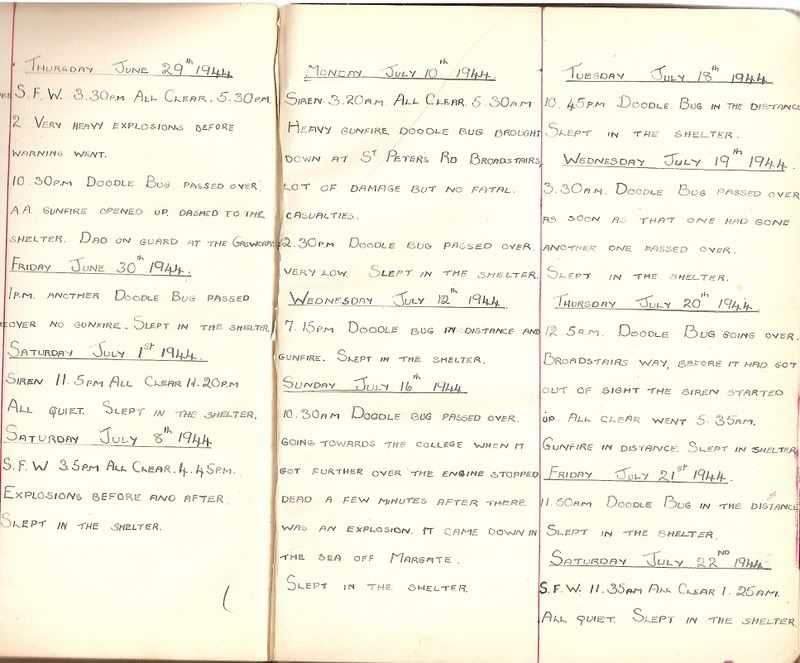 Thursday June 29th 1944
S.F.W. 3.30pm All Clear. 5.30pm.
2 Very heavy explosions before
warning went.
10.30pm Doodle Bug passed over
A.A. gunfire opened up. dashed to the
shelter. Dad on guard at the Gasworks
Friday June 30th 1944.
1pm. another Doodle Bug passed
over no gunfire. Slept in the shelter
Saturday July 1st 1944.
Siren 11.5pm All Clear 11.20pm
All quiet. Slept in the shelter.
Saturday July 8th 1944
S.F.W 3.5pm All Clear. 4.45pm.
Explosions before and after.
Slept in the shelter.
Monday July 10th 1944.
Siren 3.20am. All Clear. 5.30am
Heavy gunfire. Doodle Bug brought
down at St Peters Rd Broadstairs,
lot of damage but no fatal.
casualties.
2.30pm Doodle Bug passed over.
very low. Slept in the shelter.
Wednesday July 12th 1944.
7.15pm Doodle bug in distance and
gunfire. Slept in the shelter.
Sunday July 16th 1944
10.30am Doodle Bug passed over.
going towards the college when it
got further over the engine stopped
dead a few minutes after there
was an explosion. it came down in
the sea off Margate.
Slept in the shelter.
Tuesday July 18th 1944
10.45pm Doodle Bug in the distance
Slept in the shelter.
Wednesday July 19th 1944.
3.30am. Doodle Bug passed over
as soon as that one had gone
another one passed over.
Slept in the shelter.
Thursday July 20th 1944.
12.5am. Doodle Bug going over.
Broadstairs way, before it had got
out of sight the siren started
up. All clear went 5.35am.
Gunfire in distance. Slept in shelter
Friday July 21st 1944.
11.50am Doodle Bug in the distance
Slept in the shelter.
Saturday July 22nd 1944
S.F.W. 11.35am All Clear 1.25am.
All quiet. Slept in the shelter